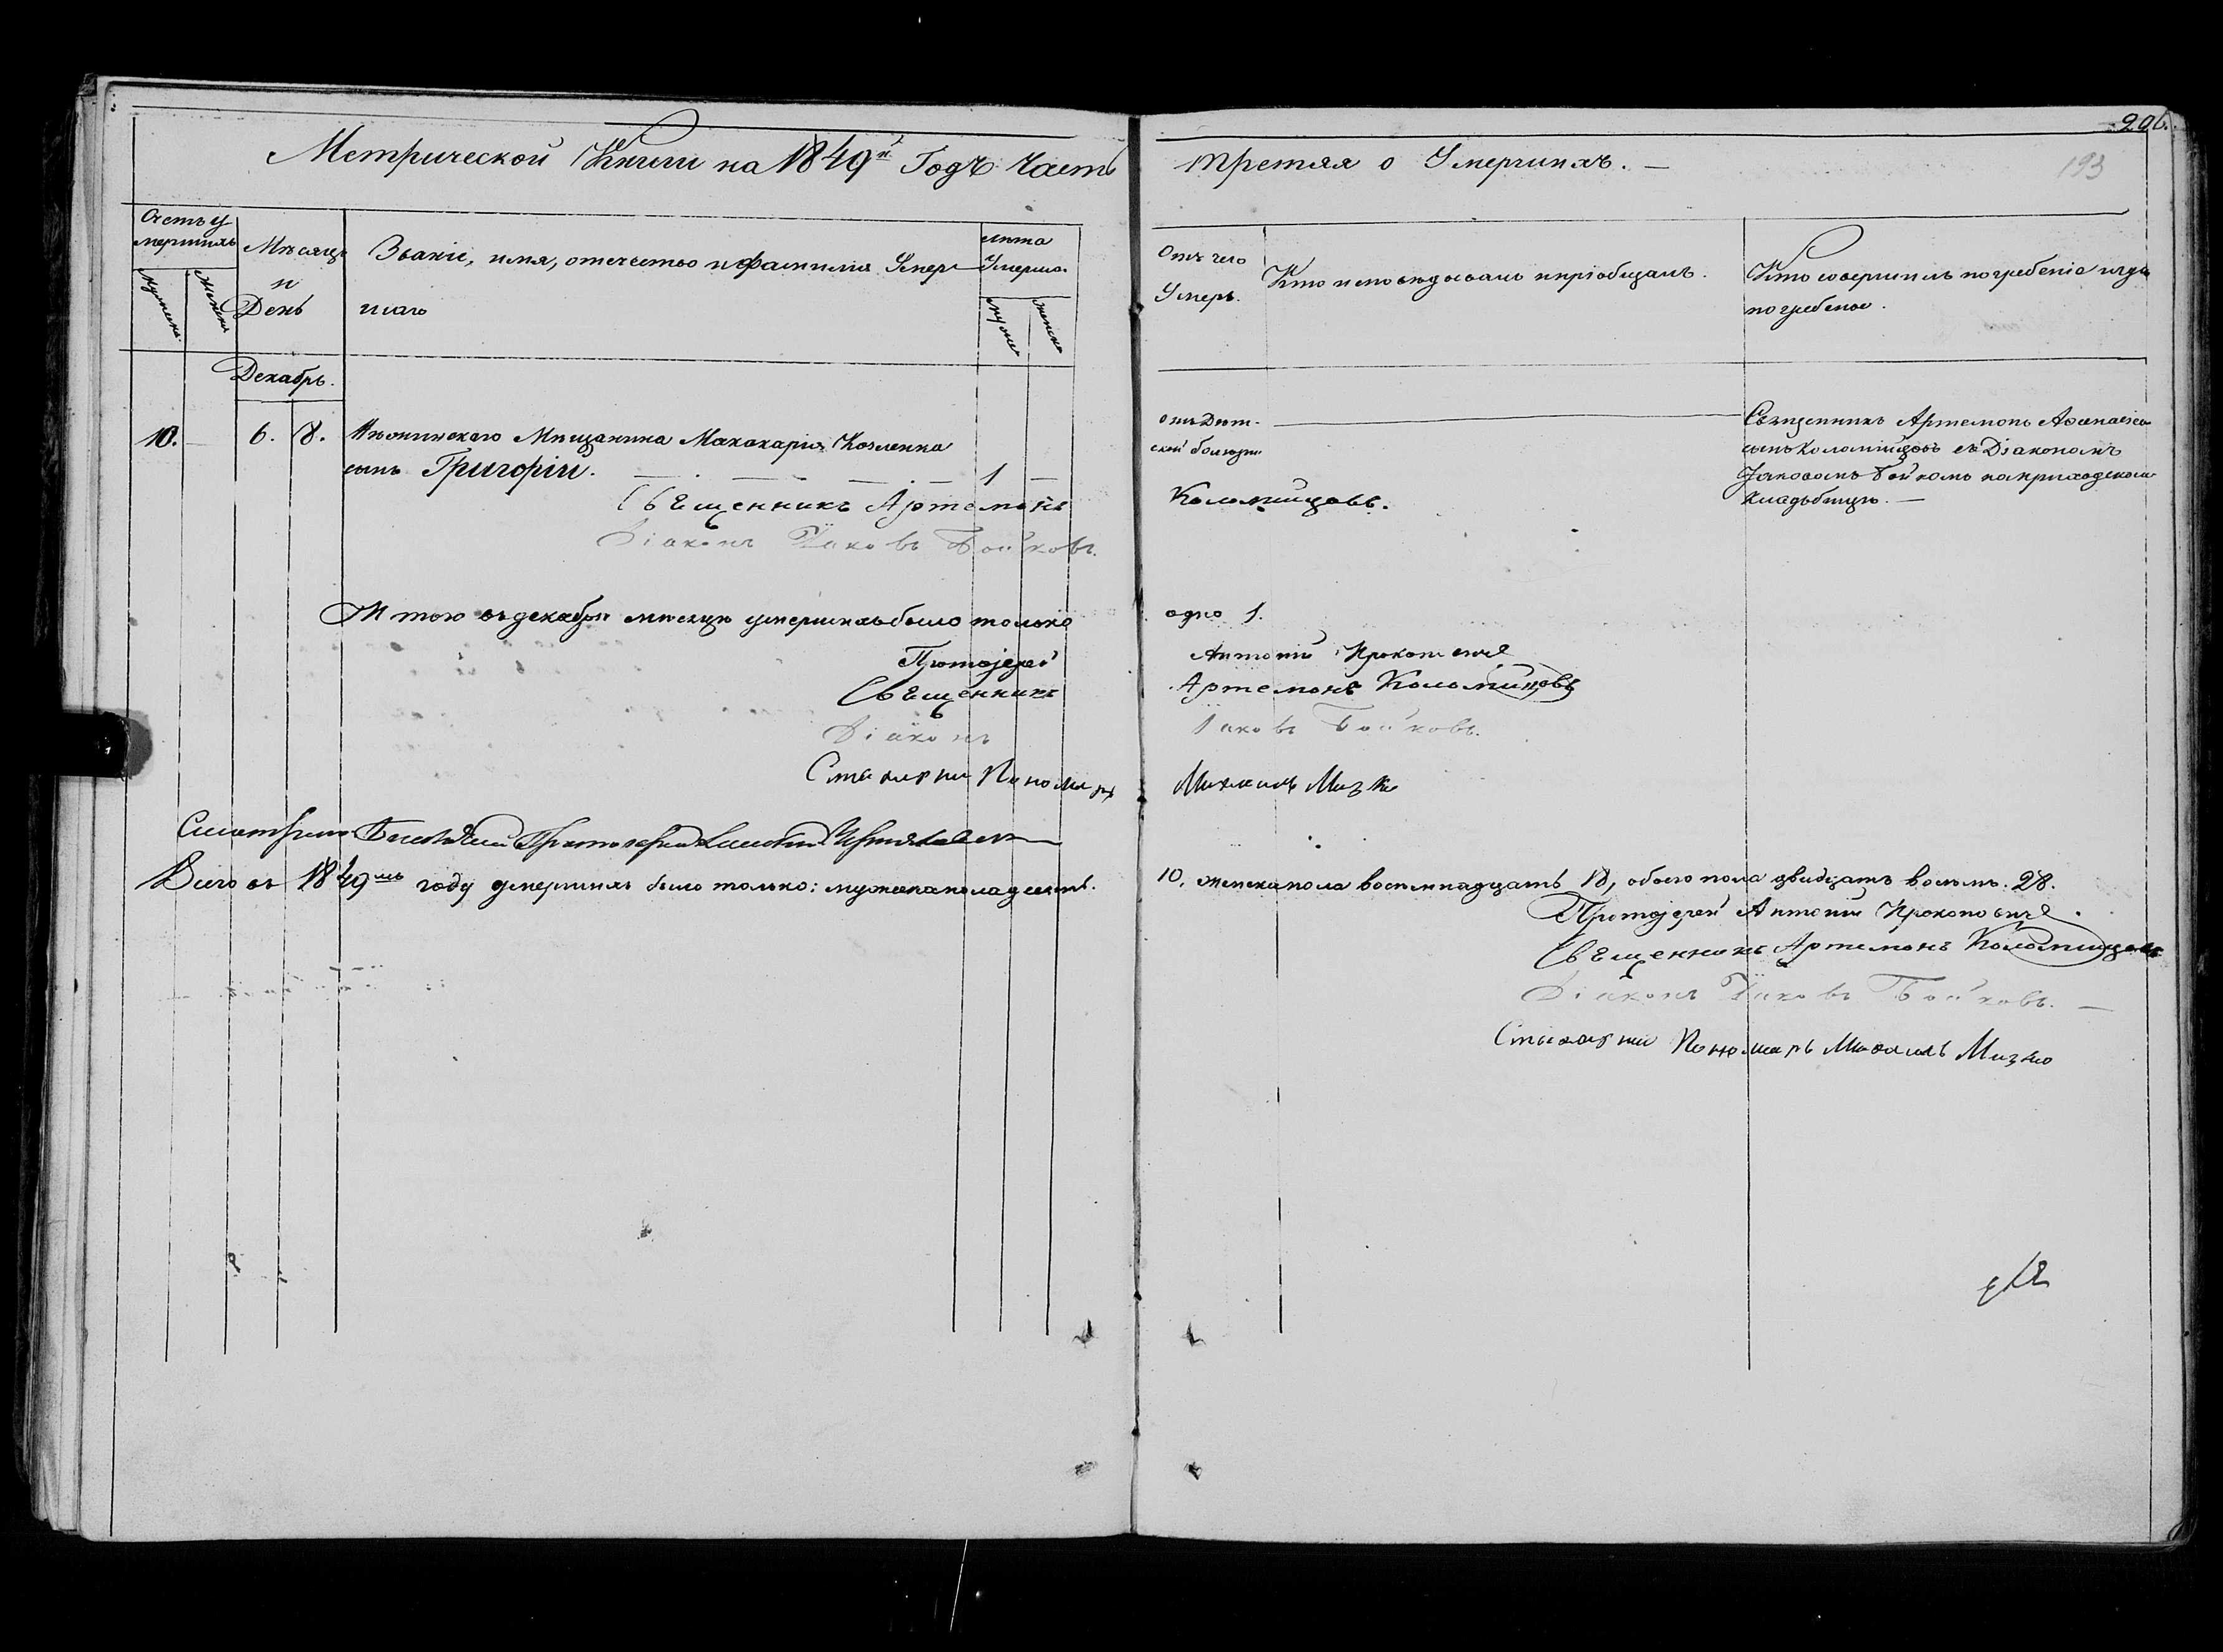 206.
193
Метрической Книги на 1849й Годъ Часть третяя о Умершихъ.
Счетъ у
мершихъ
Мужеска
Женска
Мѣсяцъ
и
День
Званіе, имя, отечество и фамилія Умер
шаго
лѣта
Умерша.
муже
женска
отъ чего
Умеръ.
Кто исповѣдовалъ и пріобщалъ.
Кто совершилъ погребеніе и гдѣ
погребены.
Декабрь.
10. 6. 8. Нѣжинскаго Мѣщанина Макакарія Козленка
сынъ Григорій. 1
отъ Дѣт-
ской болѣзни
Священникъ Артемонъ Аѳанасіевъ
сынъ Коломійцовъ съ Діакономъ
Іаковомъ Бойкомъ на приходскомъ
кладбищѣ.
Священникъ Артемонъ Коломійцовъ.
Діаконъ Іаковъ Бойковъ.
Итого въ декабрѣ мѣсяцѣ умершихъ было только одно 1.
Протоіерей Антоній Прокоповичъ
Священникъ Артемонъ Коломійцовъ
Діаконъ Іаковъ Бойковъ.
Стихарни Пономарь Михаилъ Мизко
Всего въ 1849мъ году умершихъ было только: мужеска пола десять. 10, женска пола восемнадцать 18, обоего пола двадцать восемь. 28.
Протоіерей Антоній Прокоповичъ.
Священникъ Артемонъ Коломійцовъ
Діаконъ Іаковъ Бойковъ.
Стихарни Пономарь Михаилъ Мизко